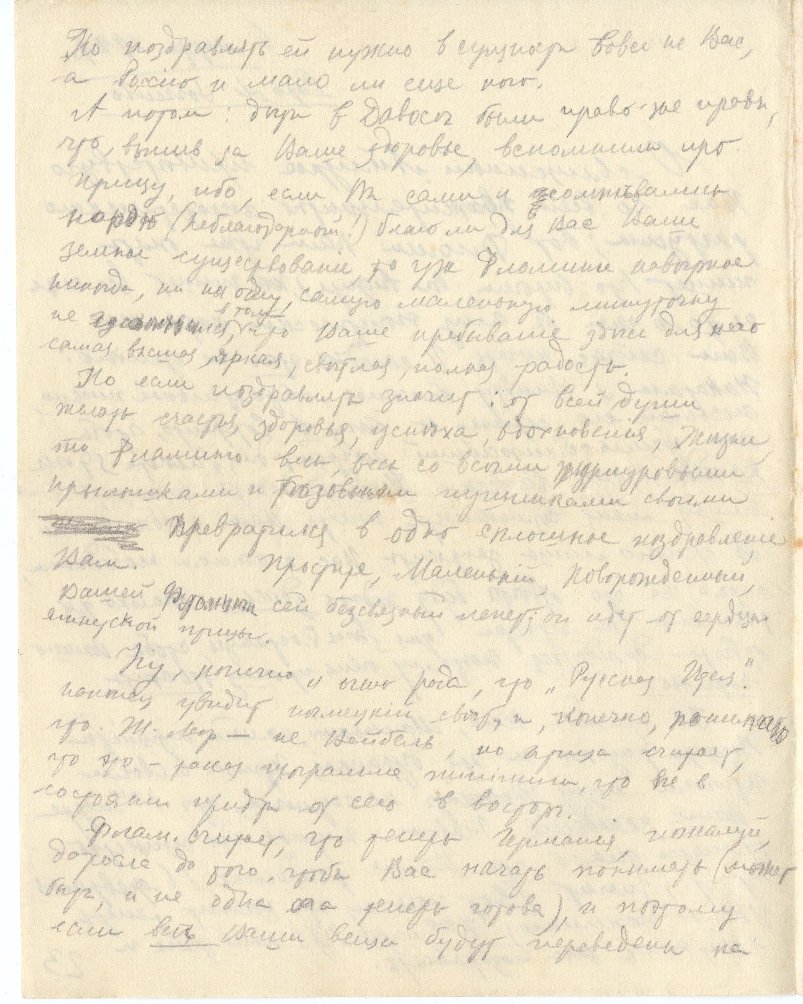 Но поздравлять ей нужно в сущности вовсе не Вас,
а и мало ли еще кого.
А потом: дети в Давосе были право-же правы,
что, выпив за Ваше здоровье, вспомнили про
птицу, ибо, если Вы сами и сомневались
(Неблагодарный!) благо ли для Вас Ваше
земное существованiе то уж Фламинго
никогда, ни на одну, самую маленькую минуточку
не в том, что Ваше пребыванiе здесь для него
самая высшая, яркая, свѣтлая, полная радость.
Но если поздравлять значит: от всей души
желать счастья, здоровья, успѣха, вдохновенья, жизни,
то Фламинго весь, весь со всѣми
крылышками и своими
превратился в одно сплошное поздравленiе
Вам. Простите, Маленькiй, Новорожденный,
Вашей сей безсвязный лепет; он идет от сердца
птицы.
Ну, конечно и очень рада, что „Русская Идея"
наконец увидит нѣмецкiй свѣт, и, конечно, понимаю
что — не Вейбель, но птица считает,
что это – , что не в
состоянiи придти от сего в восторг.
Флам. считает, что теперь Германiя, пожалуй,
доросла до того, чтобы Вас начать понимать (может
быть, и не одна она теперь готова), и поэтому
если всѣ Ваши вещи будут переведены на